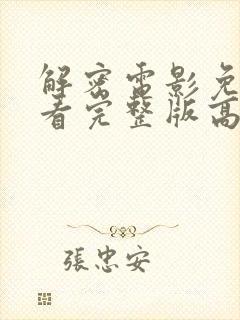 解密电影免
看完整版高
張忠安